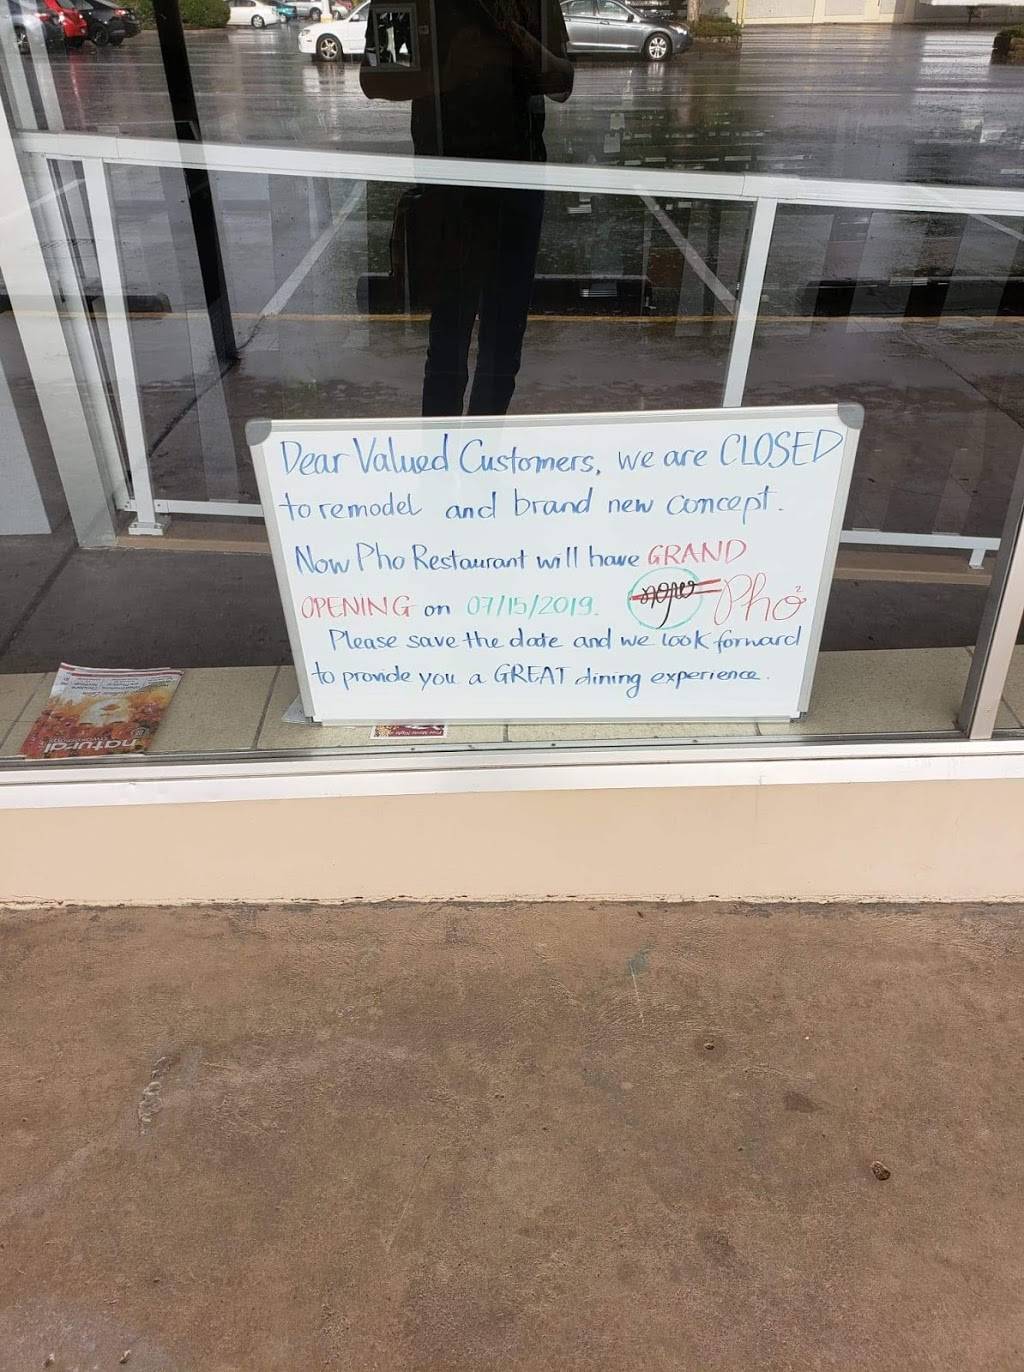 Dear Valued Customers, we are CLOSED
to remodel and brand new concept.
Now Pho Restaurant will have GRAND
OPENING on 07/15/2019. Phở
Please save the date and we look forward
to provide you a GREAT dining experience.
natural